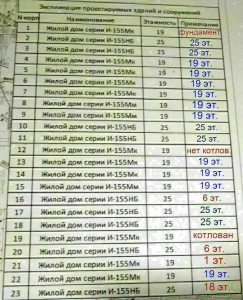 Экспликация проектируемых зданий и сооружений
N корп Наименование Этажность Примечание
1 Жилой дом серии И-155Мк 19 фундамент
2 Жилой дом серии И-155НБ 25 25 эт.
3 Жилой дом серии И-155НБ 25 25 эт.
4 Жилой дом серии И-155Мм 19 19 эт.
5 Жилой дом серии И-155Мк 19 19 эт.
6 Жилой дом серии И-155Мк 19 19 эт.
7 Жилой дом серии И-155Мм 19 19 эт.
8 Жилой дом серии И-155Мк 19 19 эт.
9 Жилой дом серии И-155Мм 19 19 эт.
10 Жилой дом серии И-155НБ 25 25 эт.
11 Жилой дом серии И-155НБ 25 25 эт.
12 Жилой дом серии И-155Мк 19 нет котлов.
13 Жилой дом серии И-155Мк 19 19 эт.
14 Жилой дом серии И-155Мк 19 19 эт.
15 Жилой дом серии И-155Мм 19 19 эт.
16 Жилой дом серии И-155НБ 25 6 эт.
17 Жилой дом серии И-155НБ 25 25 эт.
18 Жилой дом серии И-155НБ 25 25 эт.
19 Жилой дом серии И-155Мк 19 котлован
20 Жилой дом серии И-155Мк 19 6 эт.
21 Жилой дом серии И-155Мм 19 1 эт.
22 Жилой дом серии И-155Мм 19 19 эт.
23 Жилой дом серии И-155НБ 25 18 эт.